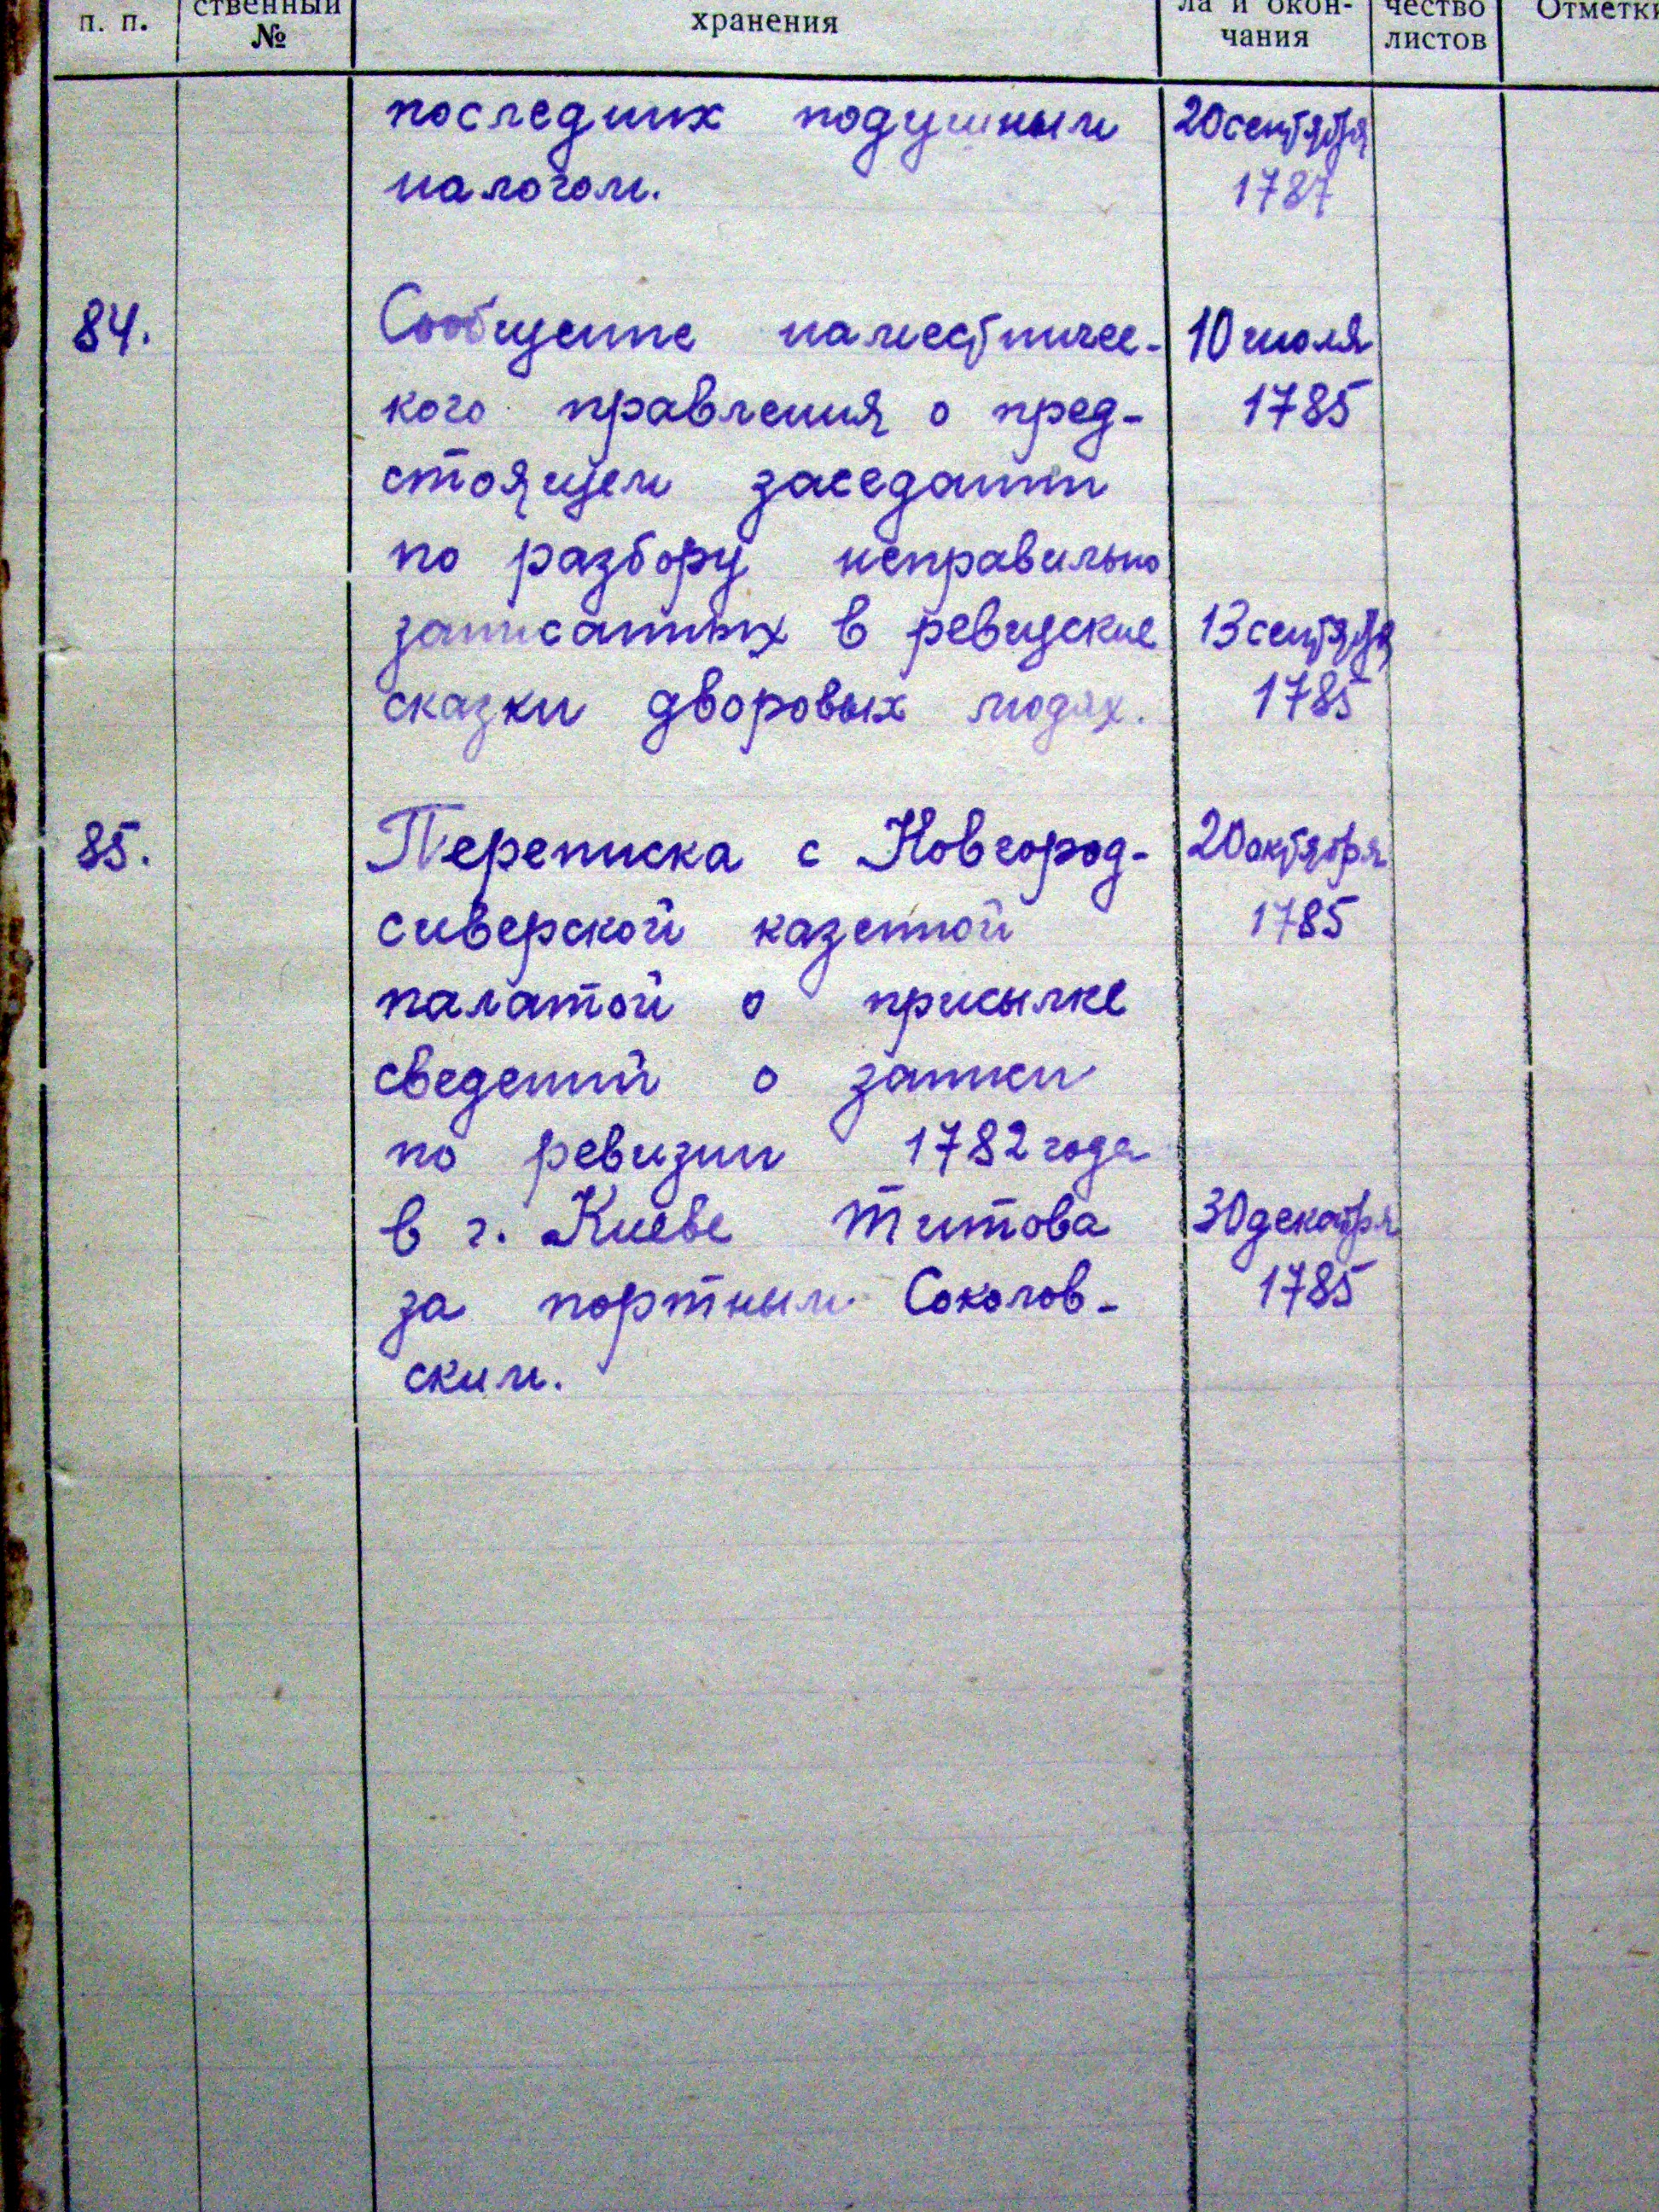 п. п.
ственный
№
хранения
ла и окон-
чания
чество
листов
Отметки
последних подушным 20 сентября
налогом. 1787
84. Сообщение наместничес- 10 июля
кого правления о пред- 1785
стоящем заседании
по разбору неправильно
записанных в ревизские 13 сентября
сказки дворовых людях. 1785
85. Переписка с Новгород- 20 октября
сиверской казенной 1785
палатой о присылке
сведений о записи
по ревизии 1782 года
в г. Киеве Титова 30 декабря
за портным Соколов- 1785
ским.